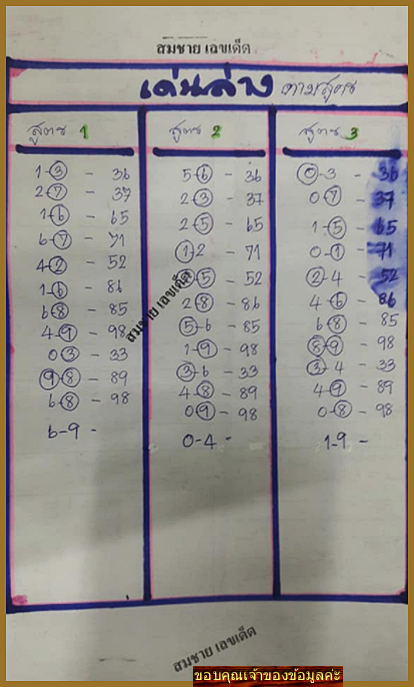 สมชาย เลขเด็ด
เด่นล่าง ตามสูตร
สูตร 1 สูตร 2 สูตร 3
1-3 - 36 5-6 - 36 0-3 - 36
2-7 - 37 2-3 - 37 0-7 - 37
1-6 - 65 2-5 - 65 1-5 - 65
6-7 - 71 1-2 - 71 0-1 - 71
4-2 - 52 -5 - 52 2-4 - 52
1-6 - 86 2-8 - 86 4-6 - 86
6-8 - 85 5-6 - 85 6-8 - 85
4-9 - 98 1-9 - 98 8-9 - 98
0-3 - 33 3-6 - 33 3-4 - 33
9-8 - 89 4-8 - 89 4-9 - 89
6-8 - 98 0-9 - 98 0-8 - 98
6-9 - 0-4 - 1-9 -
สมชาย เลขเด็ด
สมชาย เลขเด็ด
ขอบคุณเจ้าของข้อมูลค่ะ